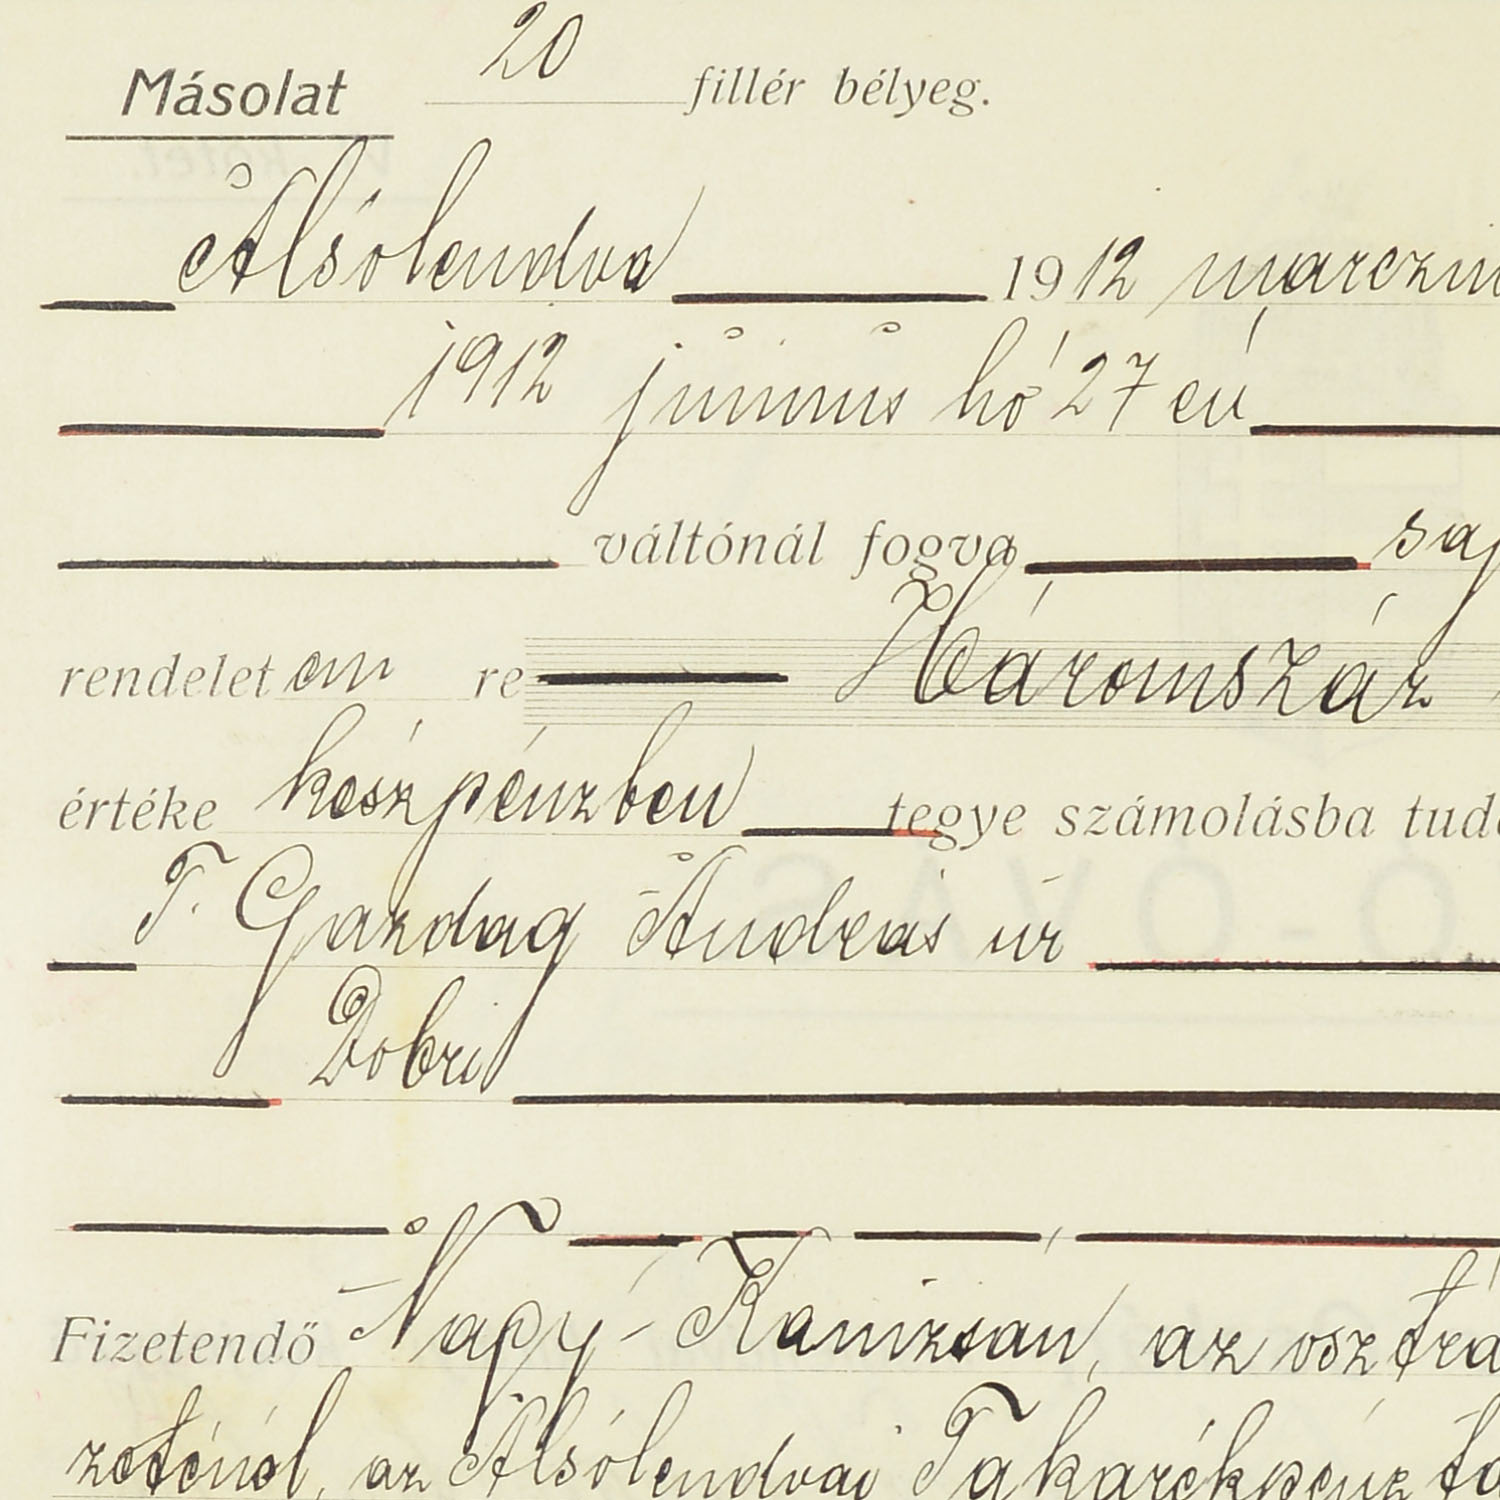 Másolat 20 fillér bélyeg.
Alsólendva 1912 marczin
1912 június hó 27 én
váltónál fogva saj
rendelet em re Háromszáz
értéke készpénzben tegye számolásba tudó
T. Gazdag András úr
Dobri
Fizetendő Nagy-Kanizsán, az osztrá
zeténél, az Alsólendvai Takarékpénztá